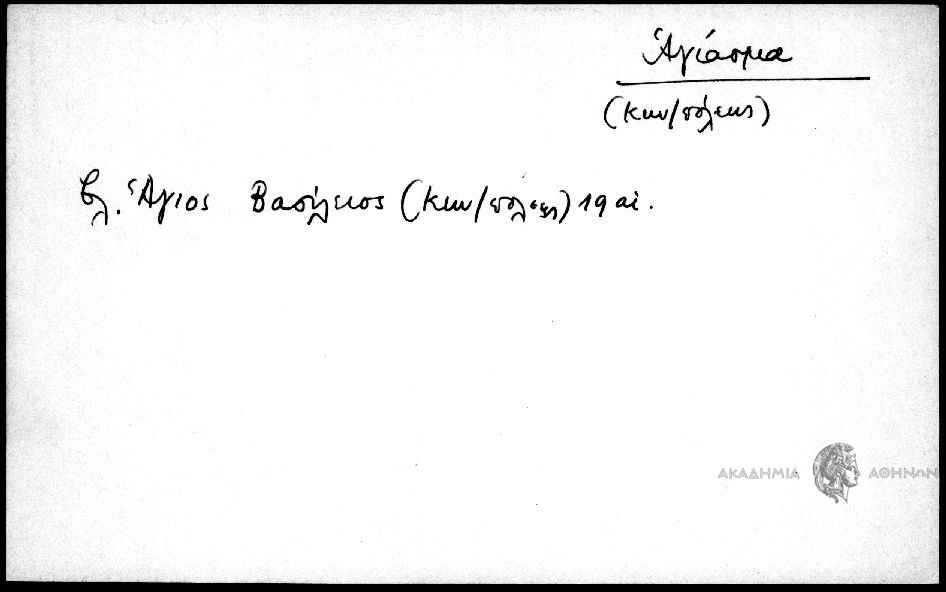 Ἁγίασμα
(Κων/πόλεως)
βλ. Ἅγιος Βασίλειος (Κων/πόλεως) 19 αἰ.
ΑΚΑΔΗΜΙΑ ΑΘΗΝΩΝ